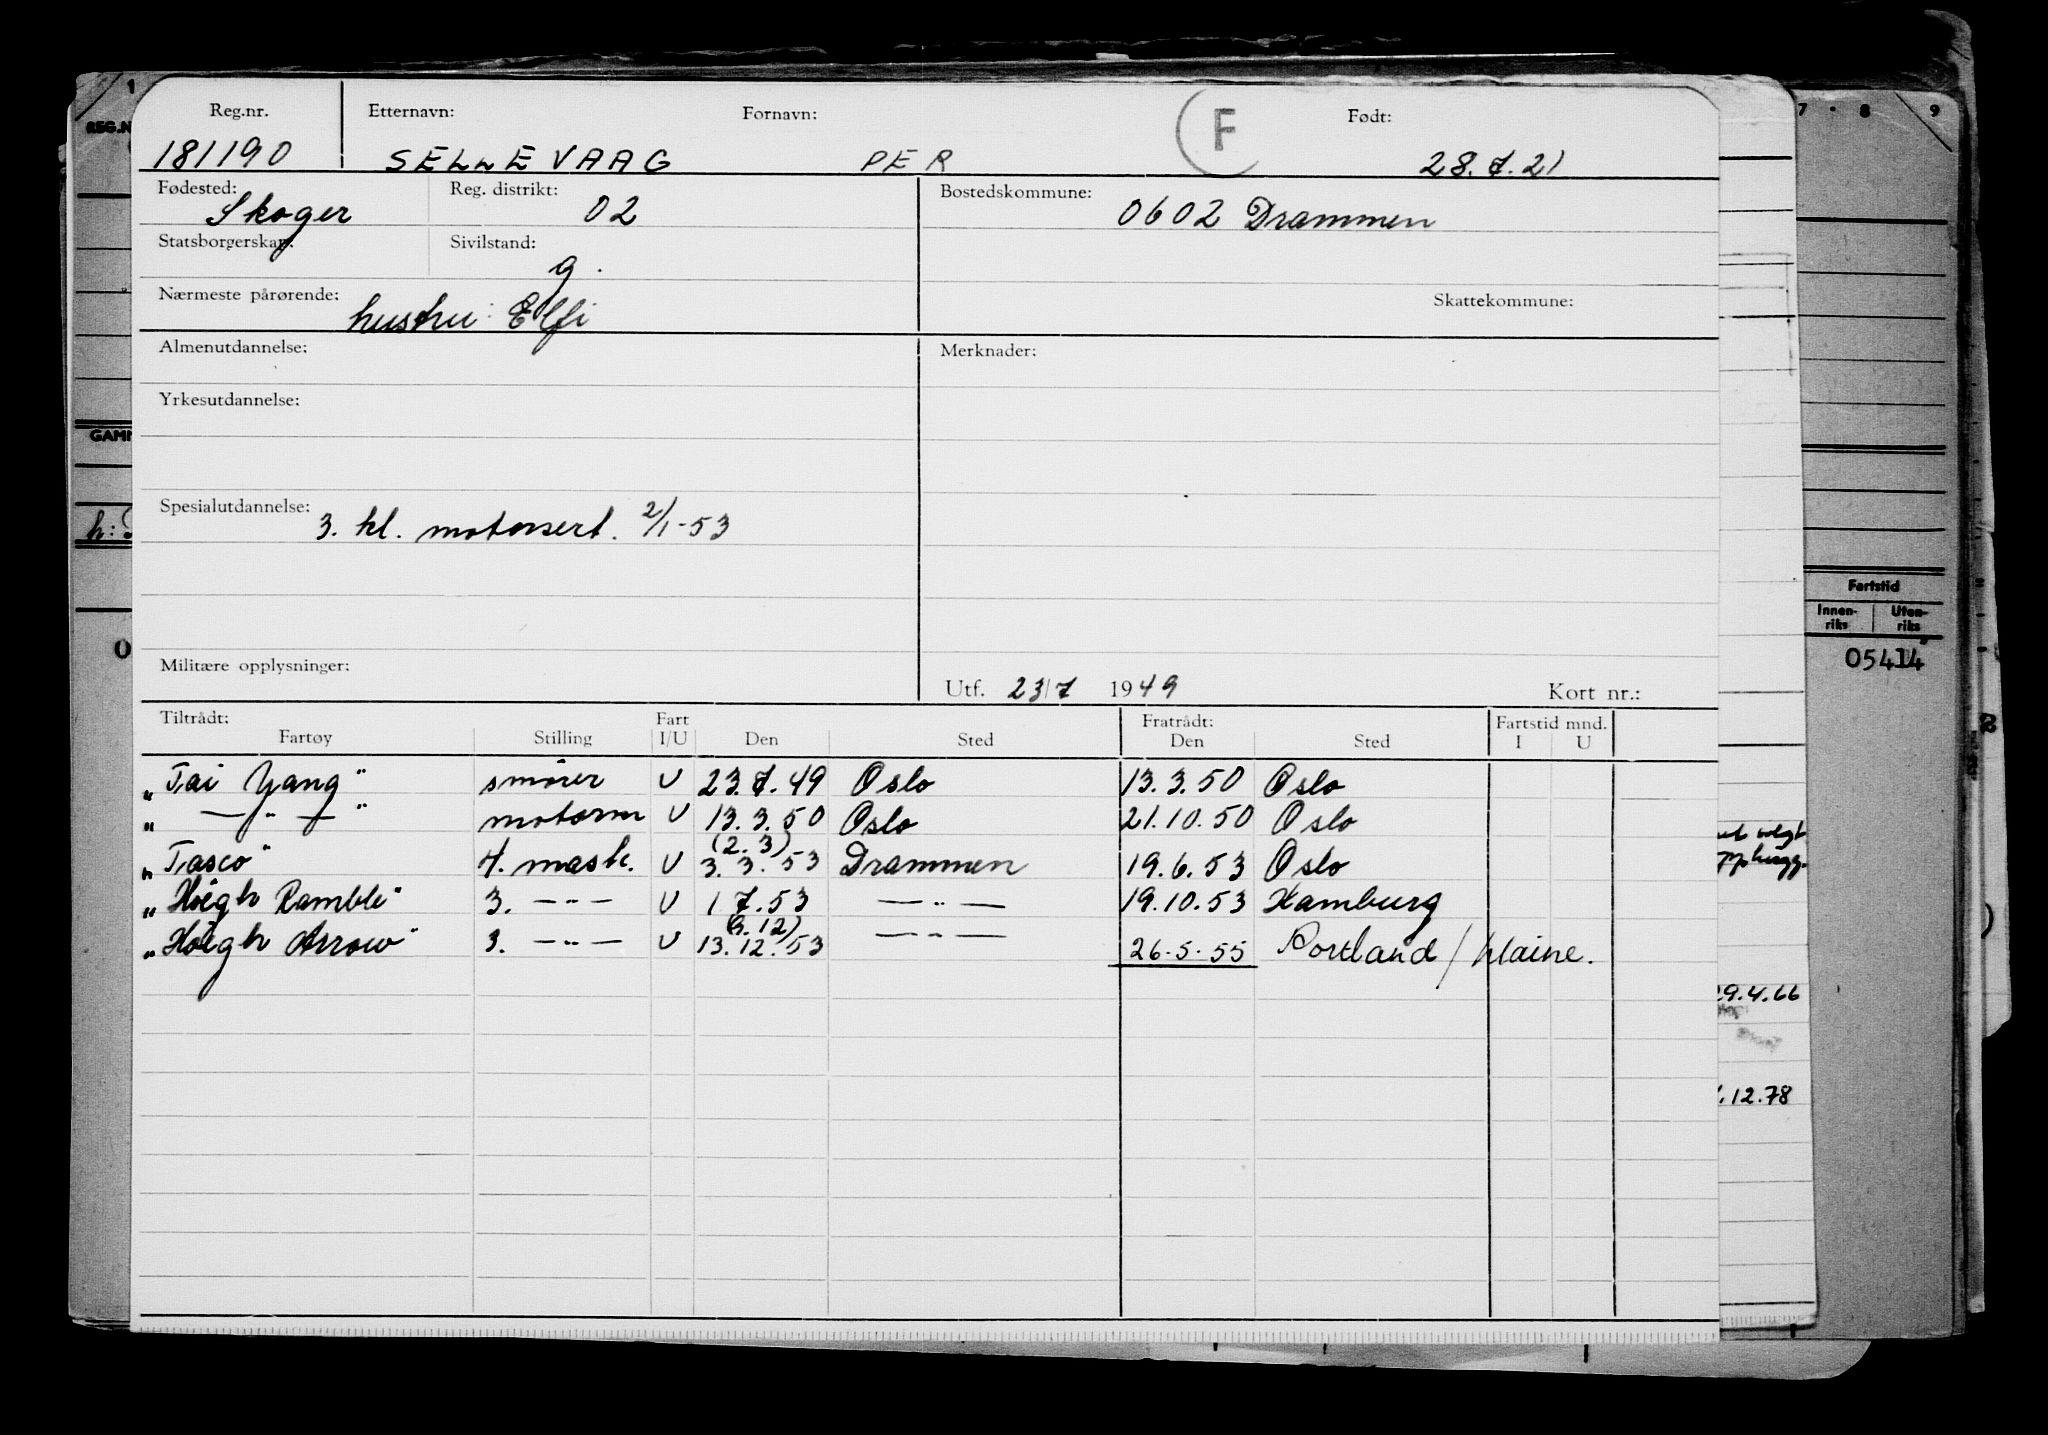 Reg.nr. Etternavn: Fornavn: F Født:
181190 SELLEVAAG PER 28.7.21
Fødested: Skoger Reg. distrikt: 02 Bostedskommune: 0602 Drammen
Statsborgerskap: Sivilstand: g.
Nærmeste pårørende: hustru: Elfi Skattekommune:
Almenutdannelse: Merknader:
Yrkesutdannelse:
Spesialutdannelse: 3. kl. motorsert. 2/1-53
Militære opplysninger:
Utf. 23/7 1949 Kort nr.:
Tiltrådt: Fart Fratrådt: Fartstid mnd.
Fartøy Stilling I/U Den Sted Den Sted I U
"Tai Yang" smører U 23.7.49 Oslo 13.3.50 Oslo
" — " — " motorm U 13.3.50 Oslo 21.10.50 Oslo
(2.3)
"Tasco" 4. mask. U 3.3.53 Drammen 19.6.53 Oslo
"Høegh Ramble" 3. — " — U 1 7.53 — " — 19.10.53 Hamburg
"Høegh Arrow" 3. — " — U 13.12.53 — " — 26-5-55 Portland / Maine.
7 8 9
REG.N
GAMM
h:
Fartstid
Innen-riks Uten-riks
05414
29.4.66
.12.78